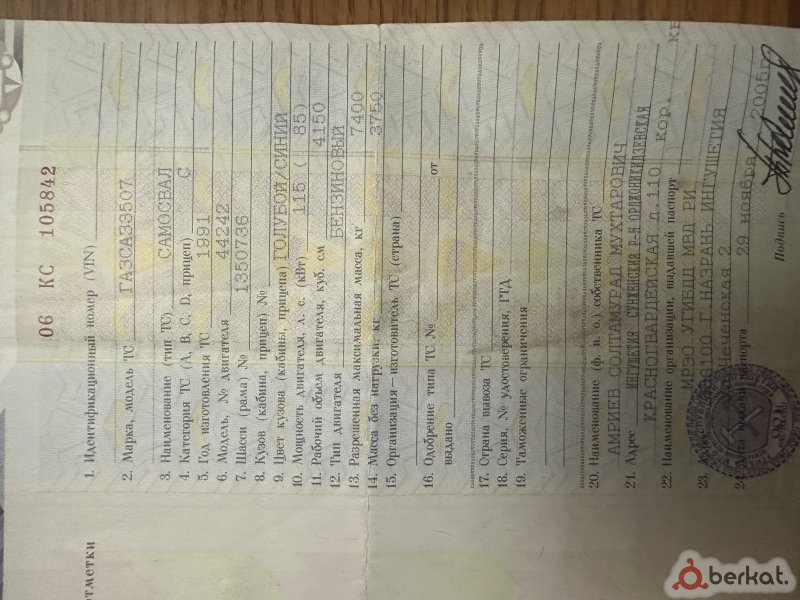 06 КС 105842
1. Идентификационный номер (VIN)
2. Марка, модель ТС ГАЗСАЗ3507
3. Наименование (тип ТС) САМОСВАЛ
4. Категория ТС (А, В, С, D, прицеп) С
5. Год изготовления ТС 1991
6. Модель, № двигателя 44242
7. Шасси (рама) № 1350736
8. Кузов (кабина, прицеп) №
9. Цвет кузова (кабины, прицепа) ГОЛУБОЙ/СИНИЙ
10. Мощность двигателя, л. с. (кВт) 115 ( 85)
11. Рабочий объем двигателя, куб. см 4150
12. Тип двигателя БЕНЗИНОВЫЙ
13. Разрешенная максимальная масса, кг 7400
14. Масса без нагрузки, кг 3750
15. Организация—изготовитель ТС (страна)
16. Одобрение типа ТС № от
выдано
17. Страна вывоза ТС
18. Серия, № удостоверения, ГТД
19. Таможенные ограничения
20. Наименование (ф. и. о.) собственника ТС
АМРИЕВ СОЛТАМУРАД МУХТАРОВИЧ
21. Адрес ИНГУШЕТИЯ СУНЖЕНСКИЙ Р-Н ОРДЖОНИКИДЗЕВСКАЯ
КРАСНОГВАРДЕЙСКАЯ д.110 кор. кв
22. Наименование организации, выдавшей паспорт
МРЭО УГИБДД МВД РИ
23. Г.НАЗРАНЬ ИНГУШЕТИЯ
2
24. паспорта 29 ноября 2005г
Подпись
отметки
berkat.